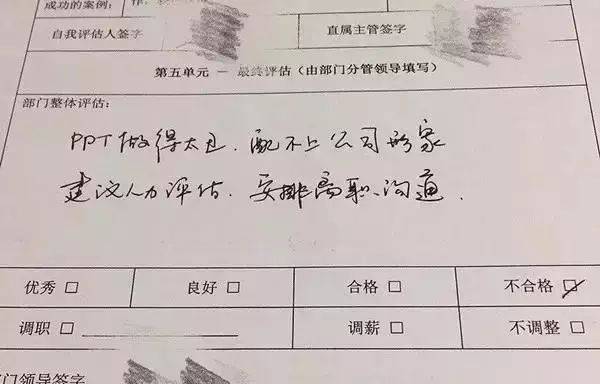 成功的案例：
自我评估人签字 直属主管签字
第五单元 — 最终评估（由部门分管领导填写）
部门整体评估：
PPT做得太丑，配不上公司形象
建议人力评估，安排离职沟通。
优秀 □ 良好 □ 合格 □ 不合格 ☑
调职 □ 调薪 □ 不调整 □
门领导签字